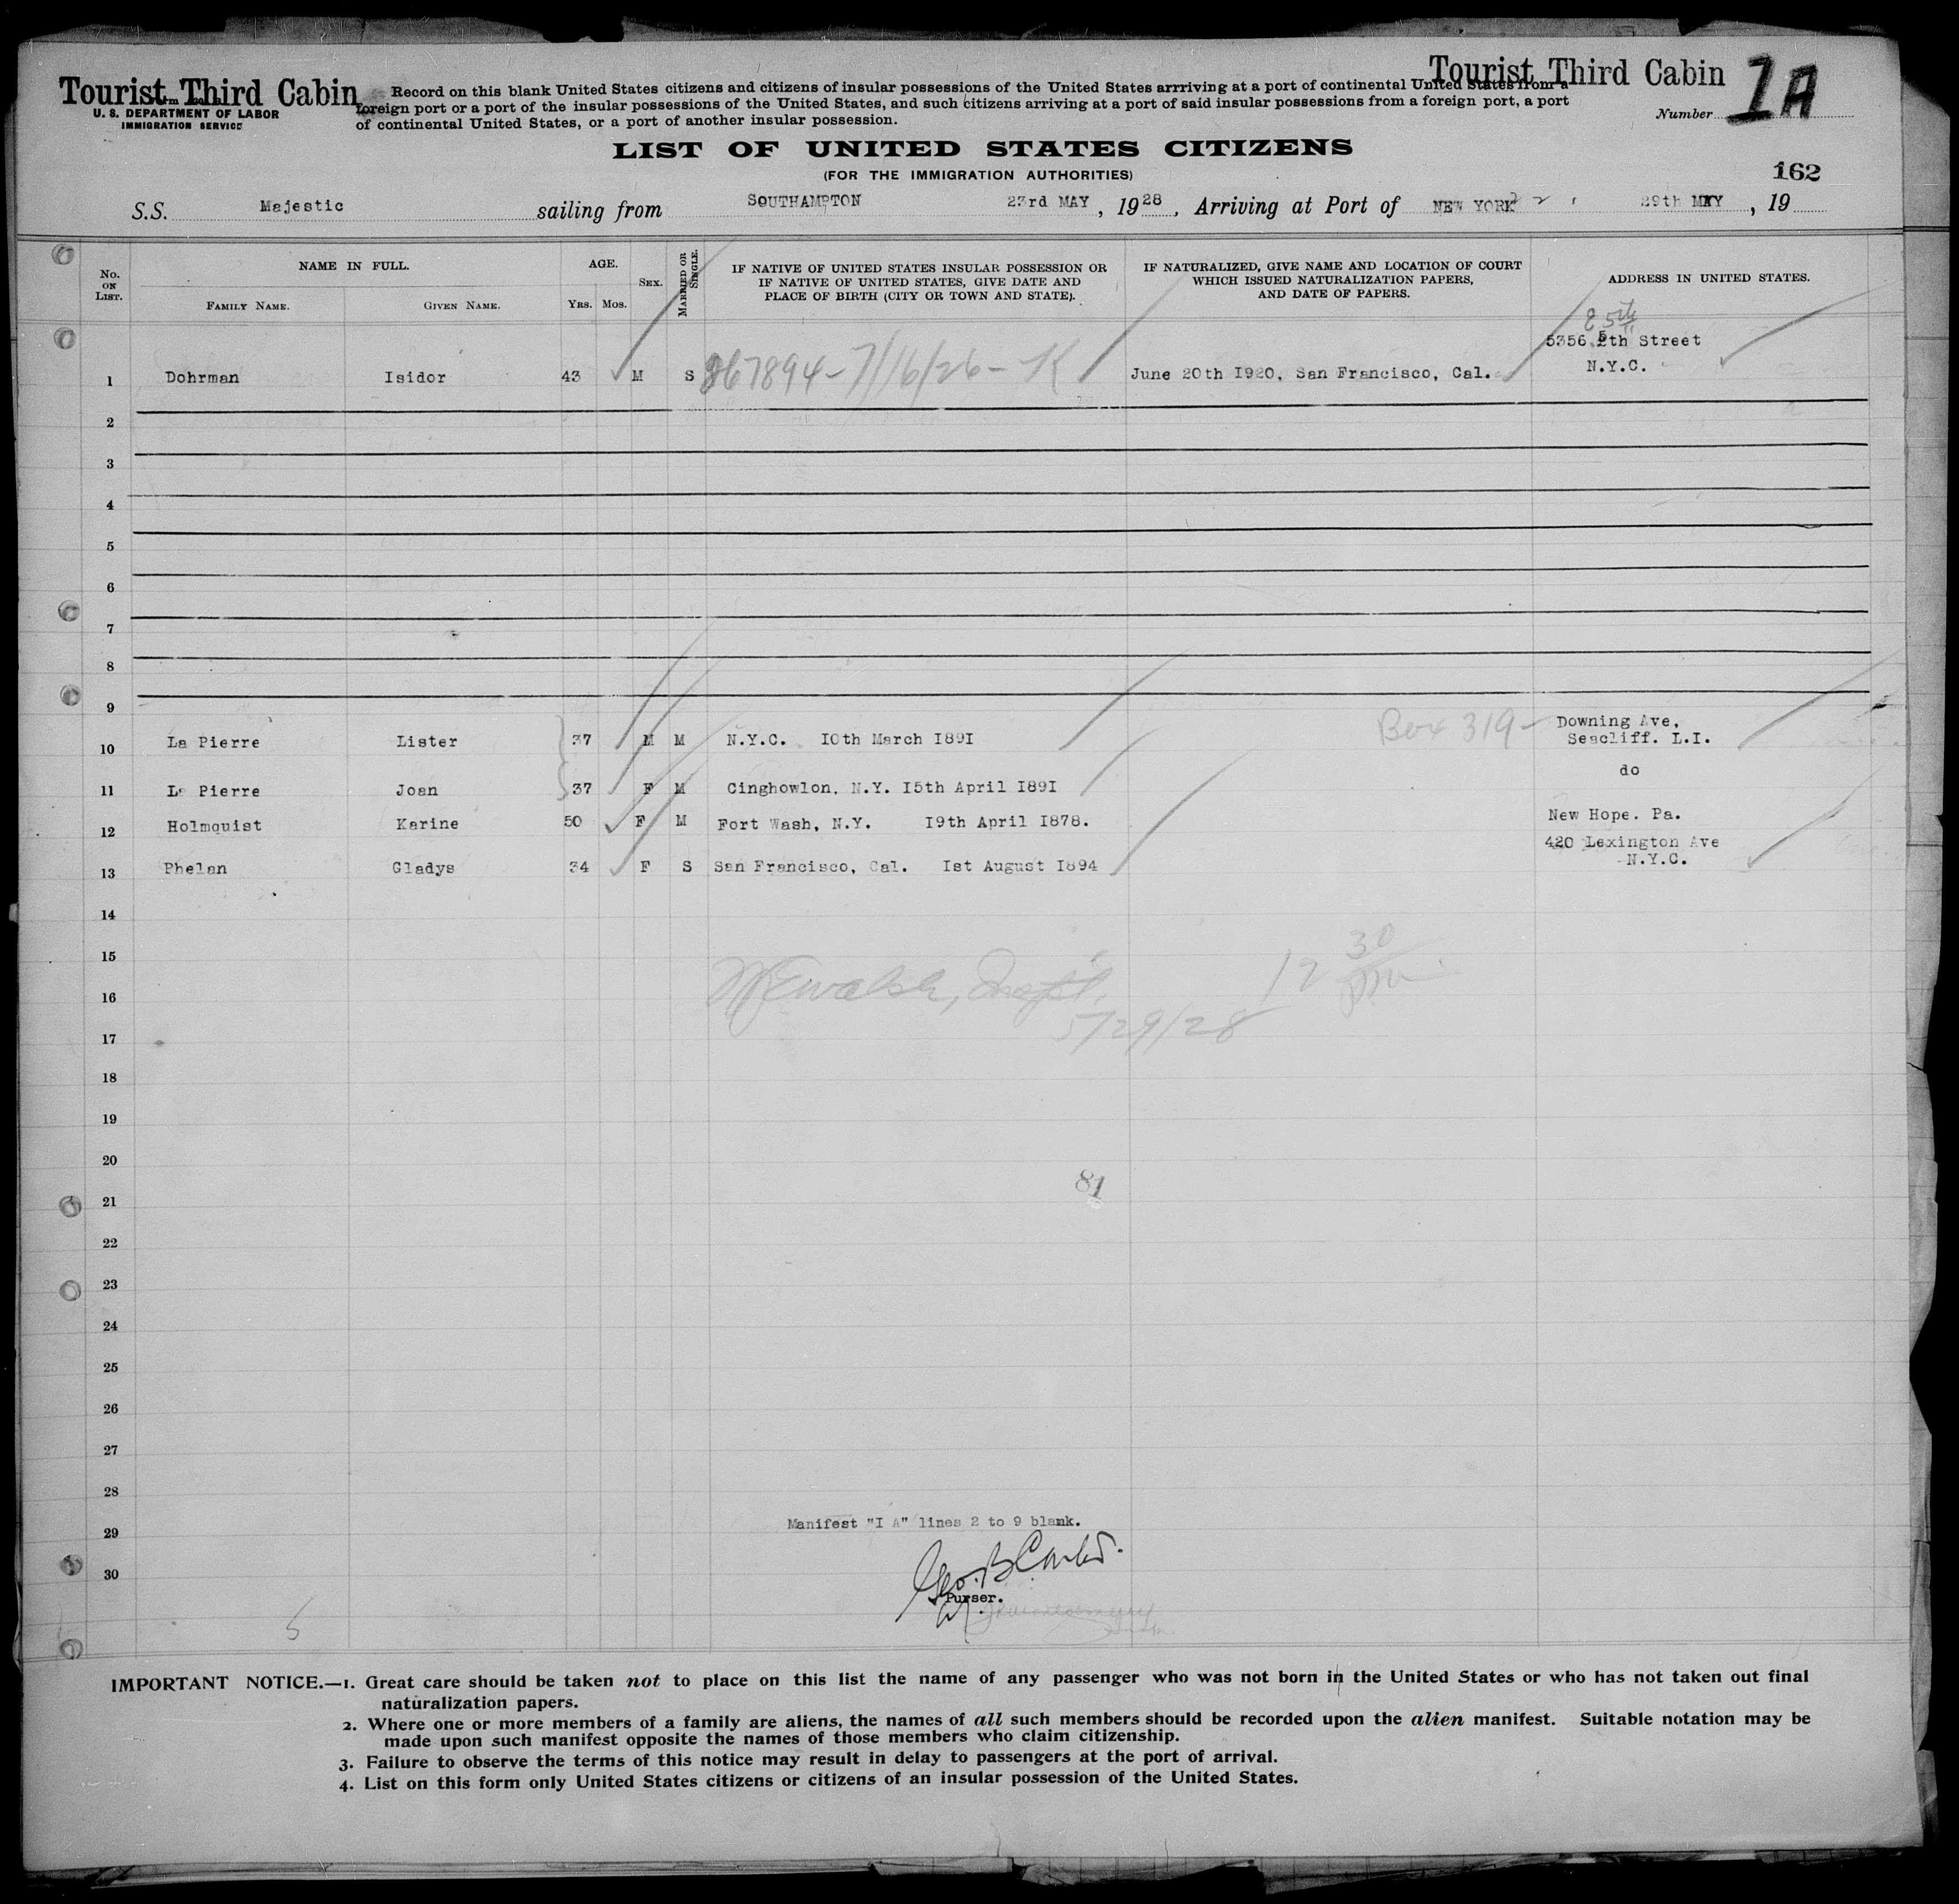 Tourist Third Cabin
U. S. DEPARTMENT OF LABOR
IMMIGRATION SERVICE
Record on this blank United States citizens and citizens of insular possessions of the United States arrriving at a port of continental United States from a
foreign port or a port of the insular possessions of the United States, and such citizens arriving at a port of said insular possessions from a foreign port, a port
of continental United States, or a port of another insular possession.
Tourist Third Cabin
Number 1A
LIST OF UNITED STATES CITIZENS
(FOR THE IMMIGRATION AUTHORITIES)
162
S.S. Majestic sailing from SOUTHAMPTON 23rd MAY, 1928, Arriving at Port of NEW YORK 29th MAY, 19
No. ON LIST.
NAME IN FULL.
FAMILY NAME. GIVEN NAME.
AGE.
Yrs. Mos.
SEX.
MARRIED OR SINGLE.
IF NATIVE OF UNITED STATES INSULAR POSSESSION OR
IF NATIVE OF UNITED STATES, GIVE DATE AND
PLACE OF BIRTH (CITY OR TOWN AND STATE).
IF NATURALIZED, GIVE NAME AND LOCATION OF COURT
WHICH ISSUED NATURALIZATION PAPERS,
AND DATE OF PAPERS.
ADDRESS IN UNITED STATES.
5356 5th Street
N.Y.C.
1 Dohrman Isidor 43 M S 267894-7/16/26-K June 20th I920, San Francisco, Cal.
2
3
4
5
6
7
8
9
Box 319- Downing Ave,
10 La Pierre Lister 37 M M N.Y.C. I0th March I89I Seacliff. L.I.
do
11 La Pierre Joan 37 F M Cinghowlon, N.Y. I5th April I89I
12 Holmquist Karine 50 F M Fort Wash, N.Y. I9th April I878. New Hope. Pa.
420 Lexington Ave
13 Phelan Gladys 34 F S San Francisco, Cal. Ist August I894 N.Y.C.
14
15
16
17
5/29/28
12 30 pm
18
19
20
81
21
22
23
24
25
26
27
28
29 Manifest "I A" lines 2 to 9 blank.
30
Purser.
5
IMPORTANT NOTICE.—1. Great care should be taken not to place on this list the name of any passenger who was not born in the United States or who has not taken out final
naturalization papers.
2. Where one or more members of a family are aliens, the names of all such members should be recorded upon the alien manifest. Suitable notation may be
made upon such manifest opposite the names of those members who claim citizenship.
3. Failure to observe the terms of this notice may result in delay to passengers at the port of arrival.
4. List on this form only United States citizens or citizens of an insular possession of the United States.